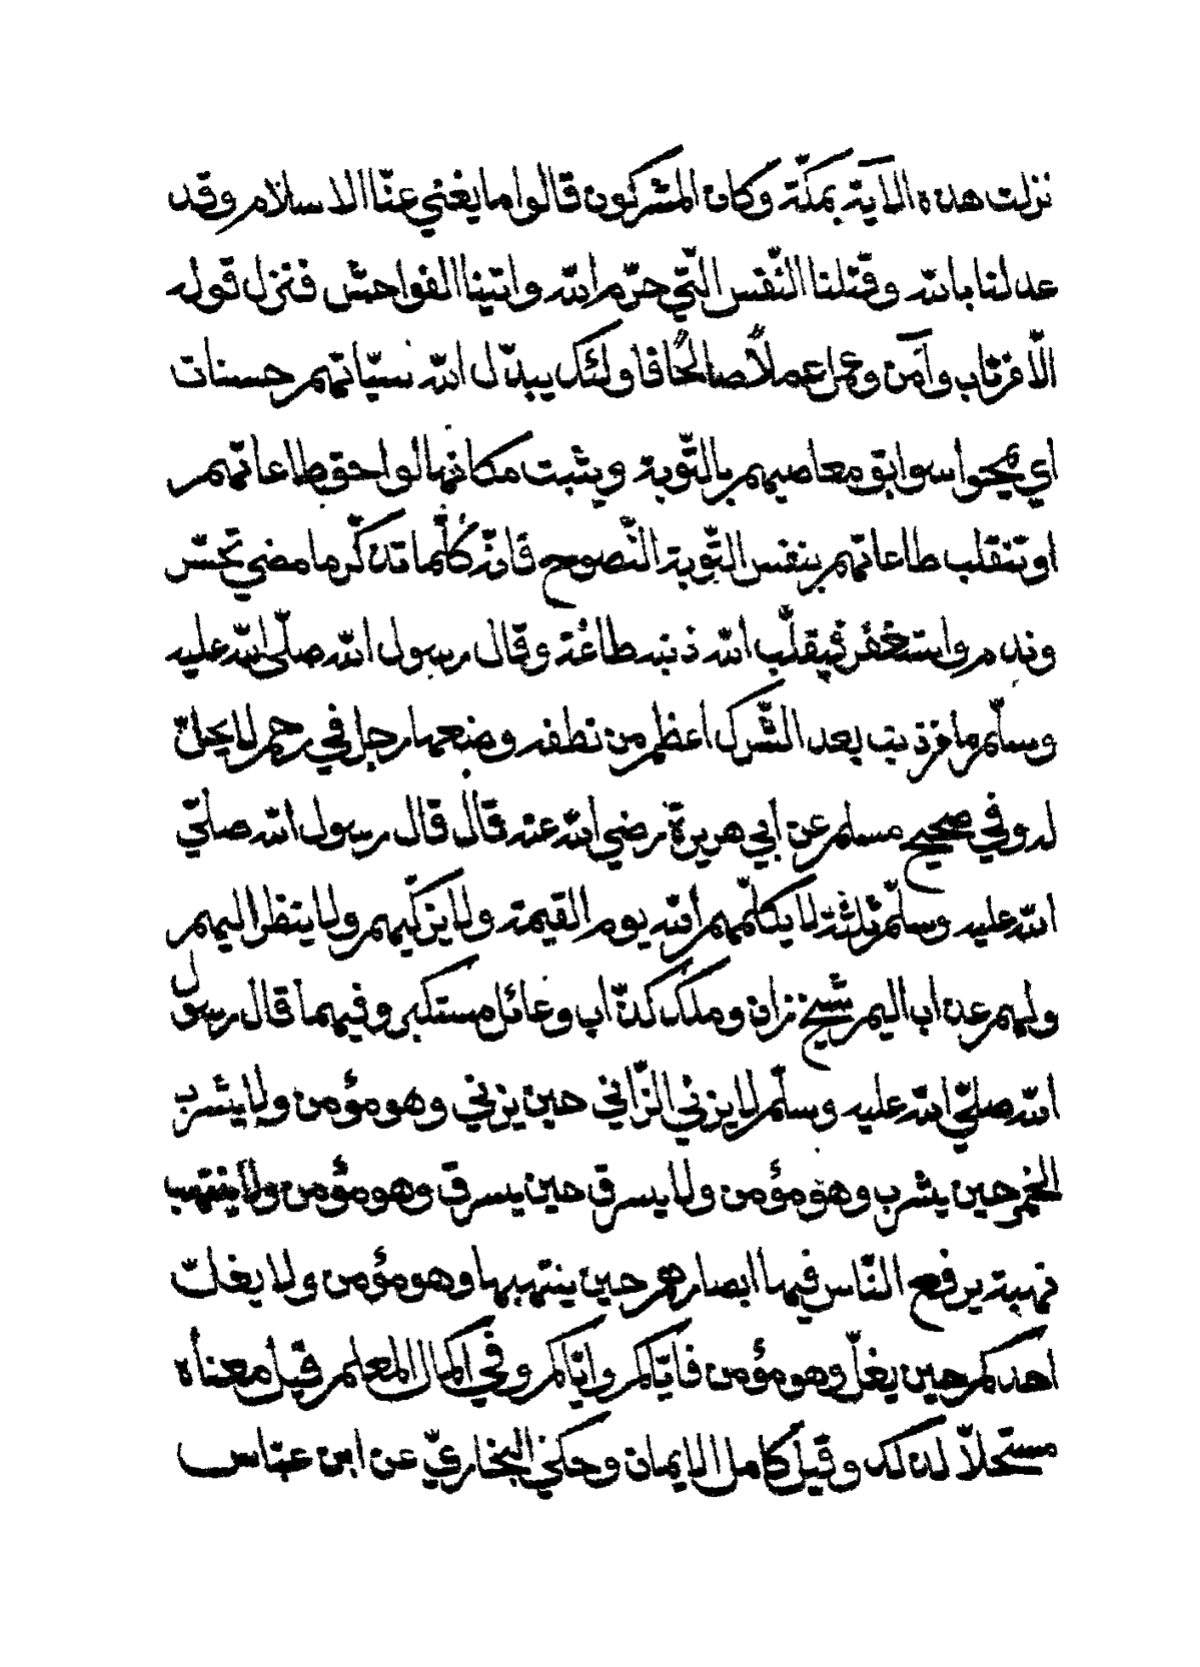 نزلت هذه الاية بمكّة وكان المشركون قالوا ما يغني عنّا الاسلام وقد
عدلنا بالله وقتلنا النّفس الّتي حرّم الله واتينا الفواحش فنزل قوله
الّا من تاب وآمن وعمل عملاً صالحًا فاولئك يبدّل الله سيّاتهم حسنات
اي يمحوا سوابق معاصيهم بالتّوبة ويثبت مكانها لواحق طاعاتهم
او تنقلب طاعاتهم بنفس التّوبة النّصوح فانّه كلّما تذكّر ما مضي تحسّر
وندم واستغفر فيقلّب الله ذنبه طاعة وقال رسول الله صلّى الله عليه
وسلّم ما من ذنب بعد الشّرك اعظم من نطفه وضعها رجل في رحم لا يحلّ
له وفي صحيح مسلم عن ابي هريرة رضي الله عنه قال قال رسول الله صلّي
الله عليه وسلّم ثلثة لا يكلّمهم الله يوم القيمة ولا يزكّيهم ولا ينظر اليهم
ولهم عذاب اليم شيخ زان وملك كذّاب وعائل مستكبر وفيهما قال رسول
الله صلّي الله عليه وسلّم لا يزني الزّاني حين يزني وهو مؤمن ولا يشرب
الخمر حين يشرب وهو مؤمن ولا يسرق حين يسرق وهو مؤمن ولا ينتهب
نهبة يرفع النّاس فيها ابصارهم حين ينتهبها وهو مؤمن ولا يغلّ
احدكم حين يغلّ وهو مؤمن فايّاكم وايّاكم وفي اكمال المعلم قيل معناه
مستحلّا لذلك وقيل كامل الايمان وحكي البخاريّ عن ابن عبّاس